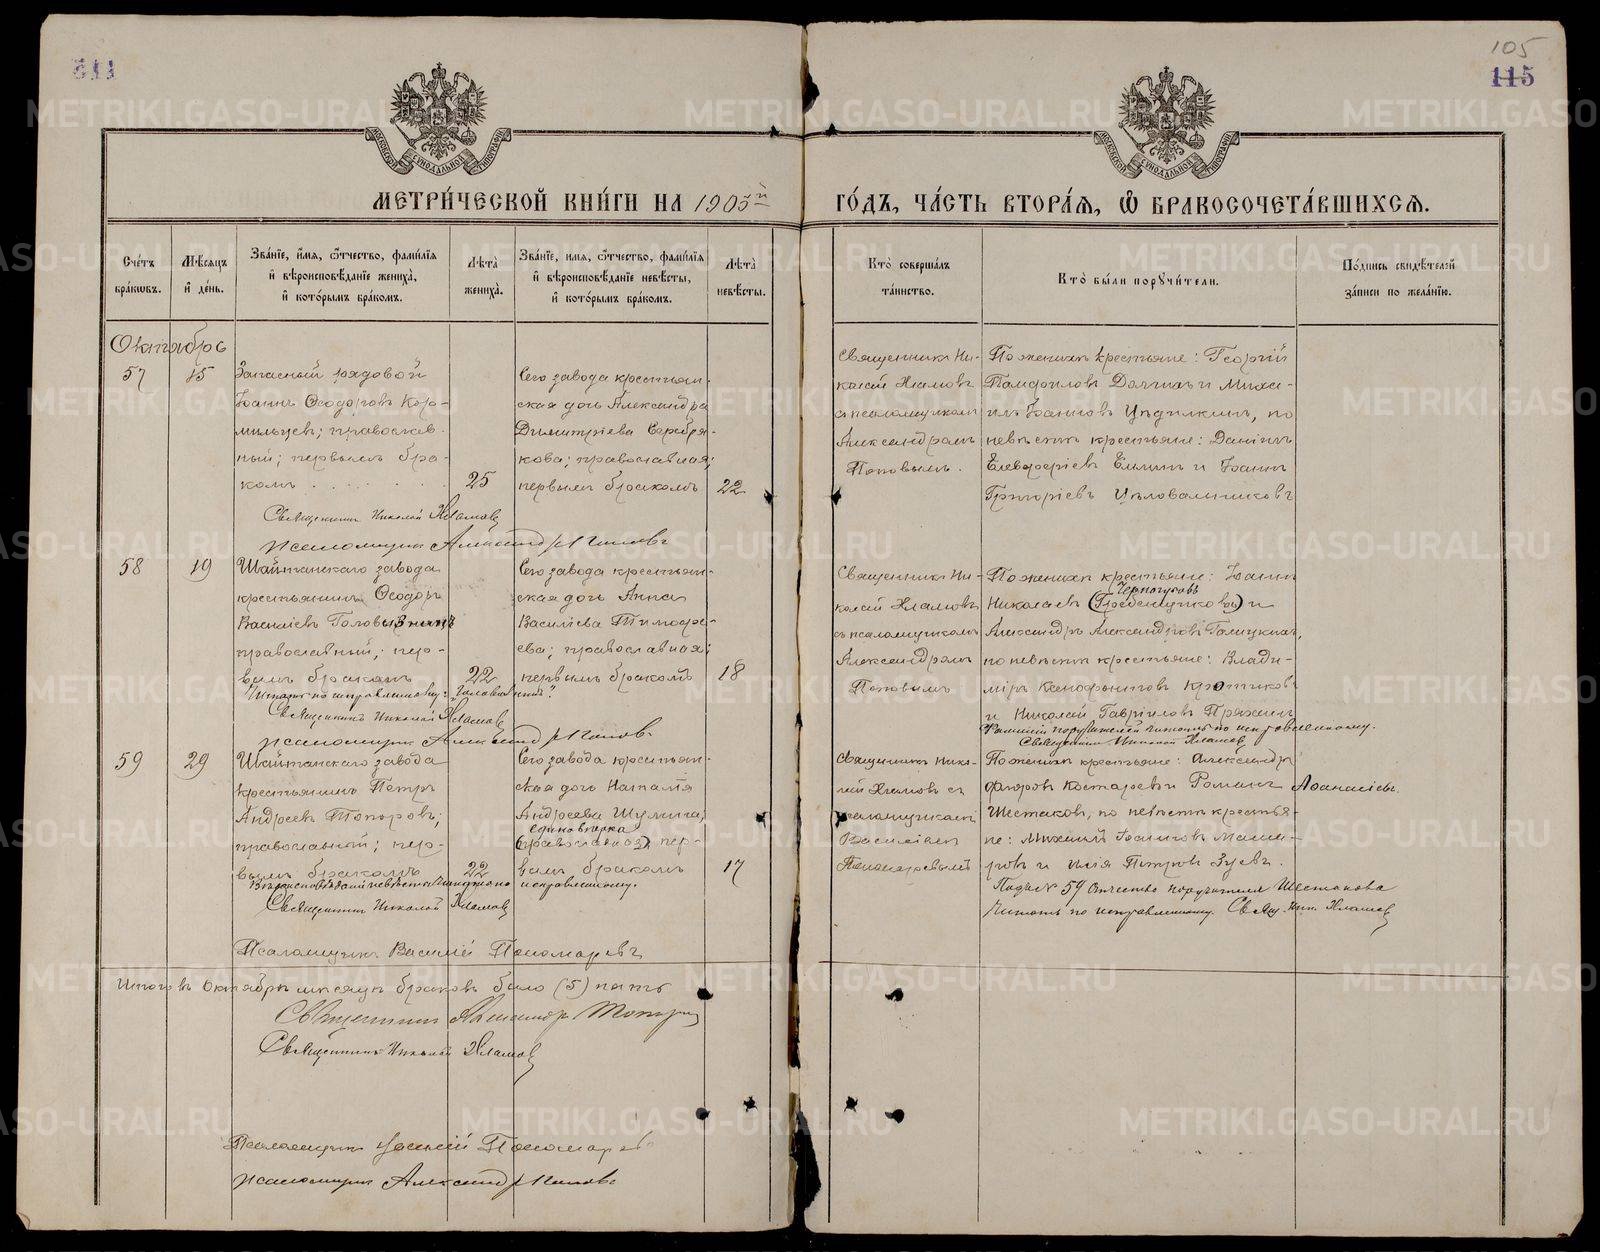 105
115
МЕТРИ́ЧЕСКОЙ КНИ́ГИ НА 1903й
ГО́ДЪ, ЧА́СТЬ ВТОРА́Я, Ѿ БРАКОСОЧЕТА́ВШИХСЯ.
Сче́тъ бра́кωвъ.
Мѣ́сяцъ и҆ де́нь.
Зва́нїе, и҆́мя, ѻ҆́тчество, фами́лїя
и҆ вѣроисповѣ́данїе жениха̀,
и҆ кото́рымъ бра́комъ.
Лѣ́та жениха̀.
Зва́нїе, и҆́мя, ѻ҆́тчество, фами́лїя
и҆ вѣроисповѣ́данїе невѣ́сты,
и҆ кото́рымъ бра́комъ.
Лѣ́та невѣ́сты.
Кто̀ соверша́лъ
та́инство.
Кто̀ бы́ли поручи́тели.
По́дпись свидѣ́телей
за́писи по жела́нїю.
Октябрь
57
15
Запасный рядовой
Іоаннъ Ѳеодоровъ Кор-
мильцевъ; православ-
ный; первымъ бра-
комъ
25
Сего завода крестьян-
ская дочь Александра
Димитріева Серебря-
кова; православная;
первымъ бракомъ
22
Священникъ Ни-
колай Хламовъ
съ псаломщикомъ
Александромъ
Поповымъ.
По женихѣ крестьяне: Георгій
Памфиловъ Долгихъ и Миха-
илъ Іоанновъ Цѣдилкинъ, по
невѣстѣ крестьяне: Даніилъ
Елевферіевъ Ельтин и Іоаннъ
Григоріевъ Цѣловальниковъ
Священникъ Николай Хламовъ
Псаломщикъ Александръ Поповъ
58
19
Шайтанскаго завода
крестьянинъ Ѳеодоръ
Василіевъ Головызнинъ
православный; пер-
вымъ бракомъ
22
Сего завода крестьян-
ская дочь Анна
Василіева Тимофе-
ева; православная;
первымъ бракомъ
18
Священникъ Ни-
колай Хламовъ
съ псаломщикомъ
Александромъ
Поповымъ
По женихѣ крестьяне: Іоаннъ
Черногубовъ
Николаевъ (Гребенщиковъ) и
Александръ Александровъ Голицынъ,
по невѣстѣ крестьяне: Влади-
міръ Ксенофонтовъ Кротиковъ
и Николай Гавріиловъ Пряхинъ
Фамилій поручителей читать по исправленному.
Священникъ Николай Хламовъ
Читать по исправленному:
Священникъ Николай Хламовъ
Псаломщикъ Александръ Поповъ
59
29
Шайтанскаго завода
крестьянинъ Петръ
Андреевъ Топоровъ;
православный; пер-
вымъ бракомъ
22
Сего завода крестьян-
ская дочь Наталія
Андреева Шулина;
единовѣрка
(православная) пер-
вымъ бракомъ
17
Священникъ Нико-
лай Хламовъ съ
псаломщикомъ
Василіемъ
Пономаревымъ
По женихѣ крестьяне: Александръ
Флоровъ Костаревъ и Романъ Аѳанасіевъ
Шестаковъ, по невѣстѣ крестья-
не: Михаилъ Іоанновъ Маши-
ровъ и Илія Петровъ Зуевъ.
Подъ № 59 Отчество поручителя Шестакова
Читать по исправленному. Свящ. Ник. Хламовъ
Вѣроисповѣданіе невѣсты читать по
исправленному.
Священникъ Николай Хламовъ
Псаломщикъ Василій Пономаревъ
Итого въ Октябрѣ мѣсяцѣ браковъ было (5) пять
Священникъ Александръ Топорковъ
Священникъ Николай Хламовъ
Псаломщикъ Василій Пономаревъ
Псаломщикъ Александръ Поповъ
METRIKI.GASO-URAL.RU